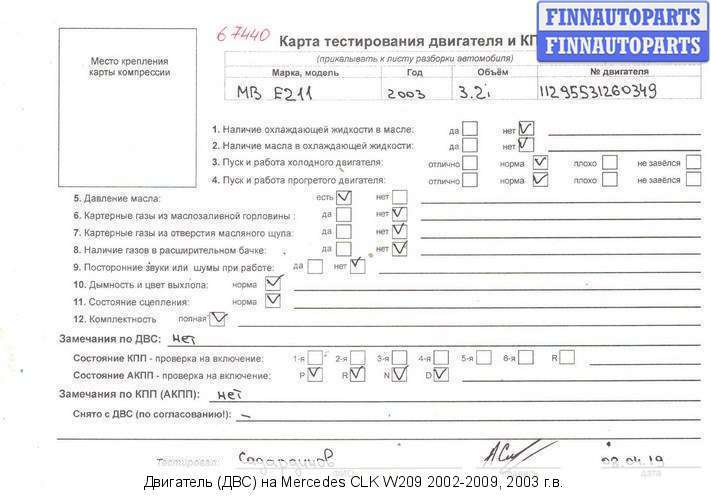 FINNAUTOPARTS
FINNAUTOPARTS
67440
Карта тестирования двигателя и КП
(прикалывать к листу разборки автомобиля)
Место крепления
карты компрессии
Марка, модель Год Объём № двигателя
МВ Е211 2003 3.2i 11295531260349
1. Наличие охлаждающей жидкости в масле: да нет
2. Наличие масла в охлаждающей жидкости: да нет
3. Пуск и работа холодного двигателя: отлично норма плохо не завёлся
4. Пуск и работа прогретого двигателя: отлично норма плохо не завёлся
5. Давление масла: есть нет
6. Картерные газы из маслозаливной горловины : да нет
7. Картерные газы из отверстия масляного щупа: да нет
8. Наличие газов в расширительном бачке: да нет
9. Посторонние звуки или шумы при работе: да нет
10. Дымность и цвет выхлопа: норма
11. Состояние сцепления: норма
12. Комплектность полная
Замечания по ДВС: нет
Состояние КПП - проверка на включение: 1-я 2-я 3-я 4-я 5-я 6-я R
Состояние АКПП - проверка на включение: P R N D
Замечания по КПП (АКПП): нет
Снято с ДВС (по согласованию!): –
Тестировал: 02.04.19
подпись дата
Двигатель (ДВС) на Mercedes CLK W209 2002-2009, 2003 г.в.